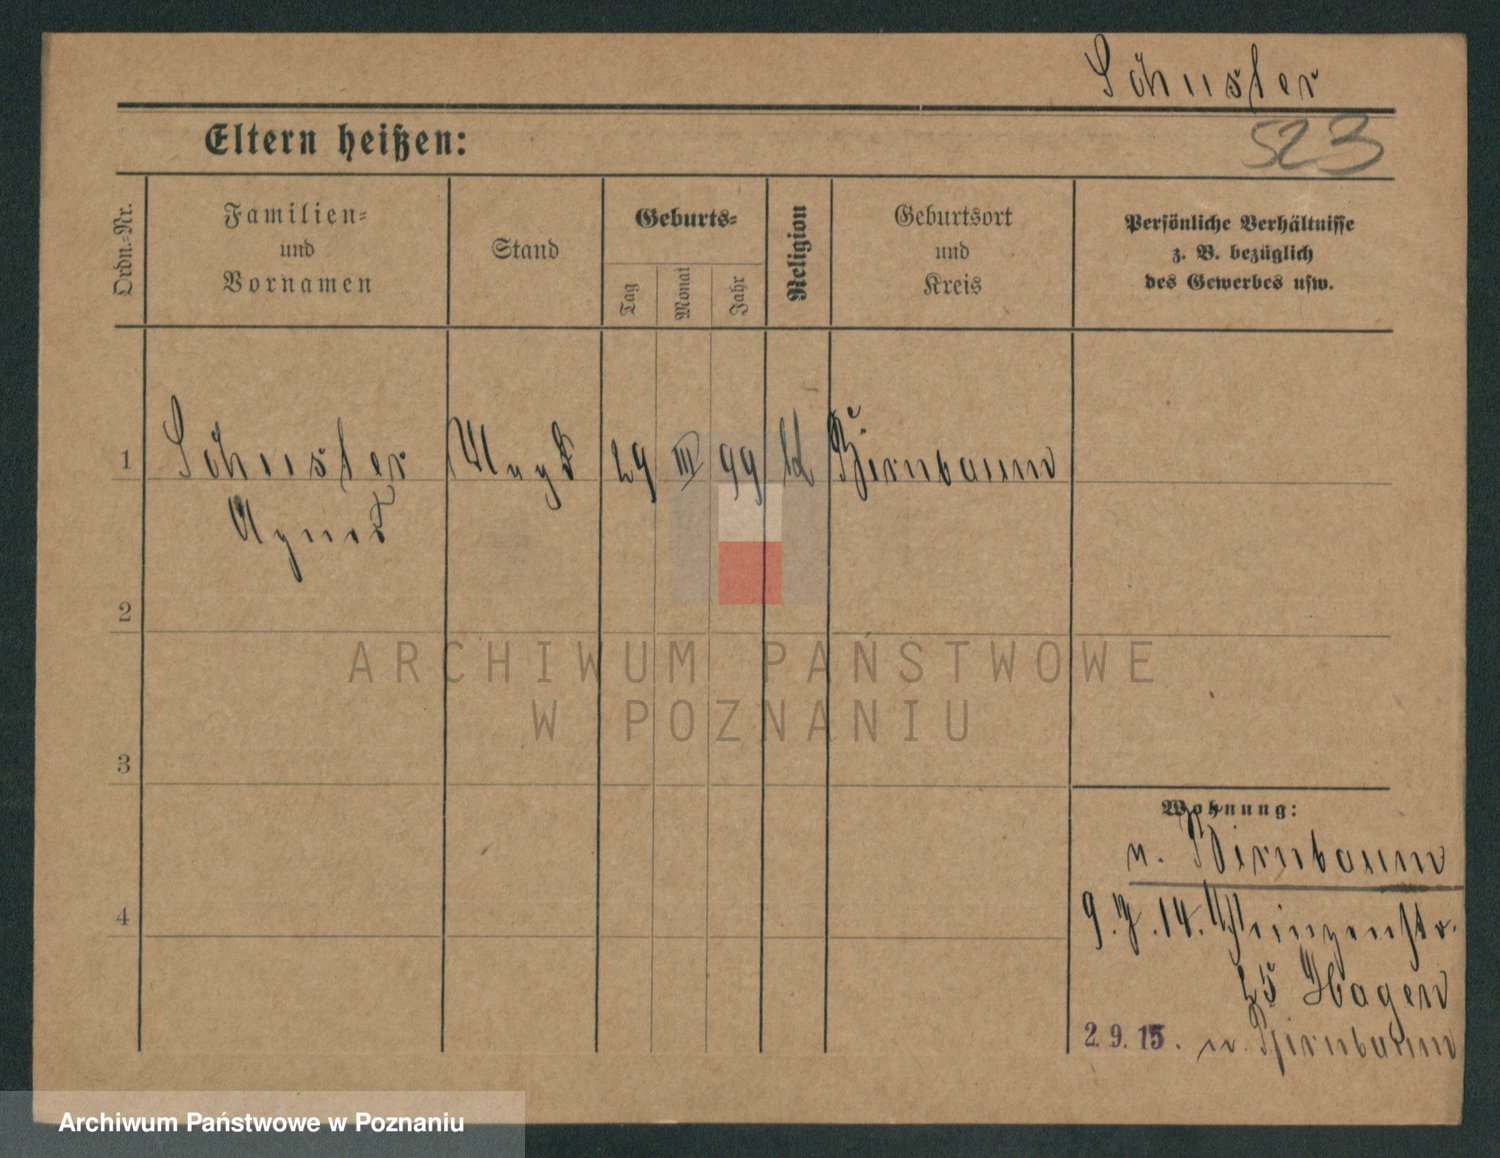 Schuster
523
Eltern heißen:
Ordn.-Nr.
Familien-
und
Vornamen
Stand
Geburts-
Tag
Monat
Jahr
Religion
Geburtsort
und
Kreis
Persönliche Verhältnisse
z. B. bezüglich
des Gewerbes usw.
1 Schuster Magd 29 III 99 k Birnbaum
Agnes
2
3
4
ARCHIWUM PAŃSTWOWE
W POZNANIU
Wohnung:
n. Birnbaum
9. 7. 14.
25 Hagen
2.9.15. n. Birnbaum
Archiwum Państwowe w Poznaniu